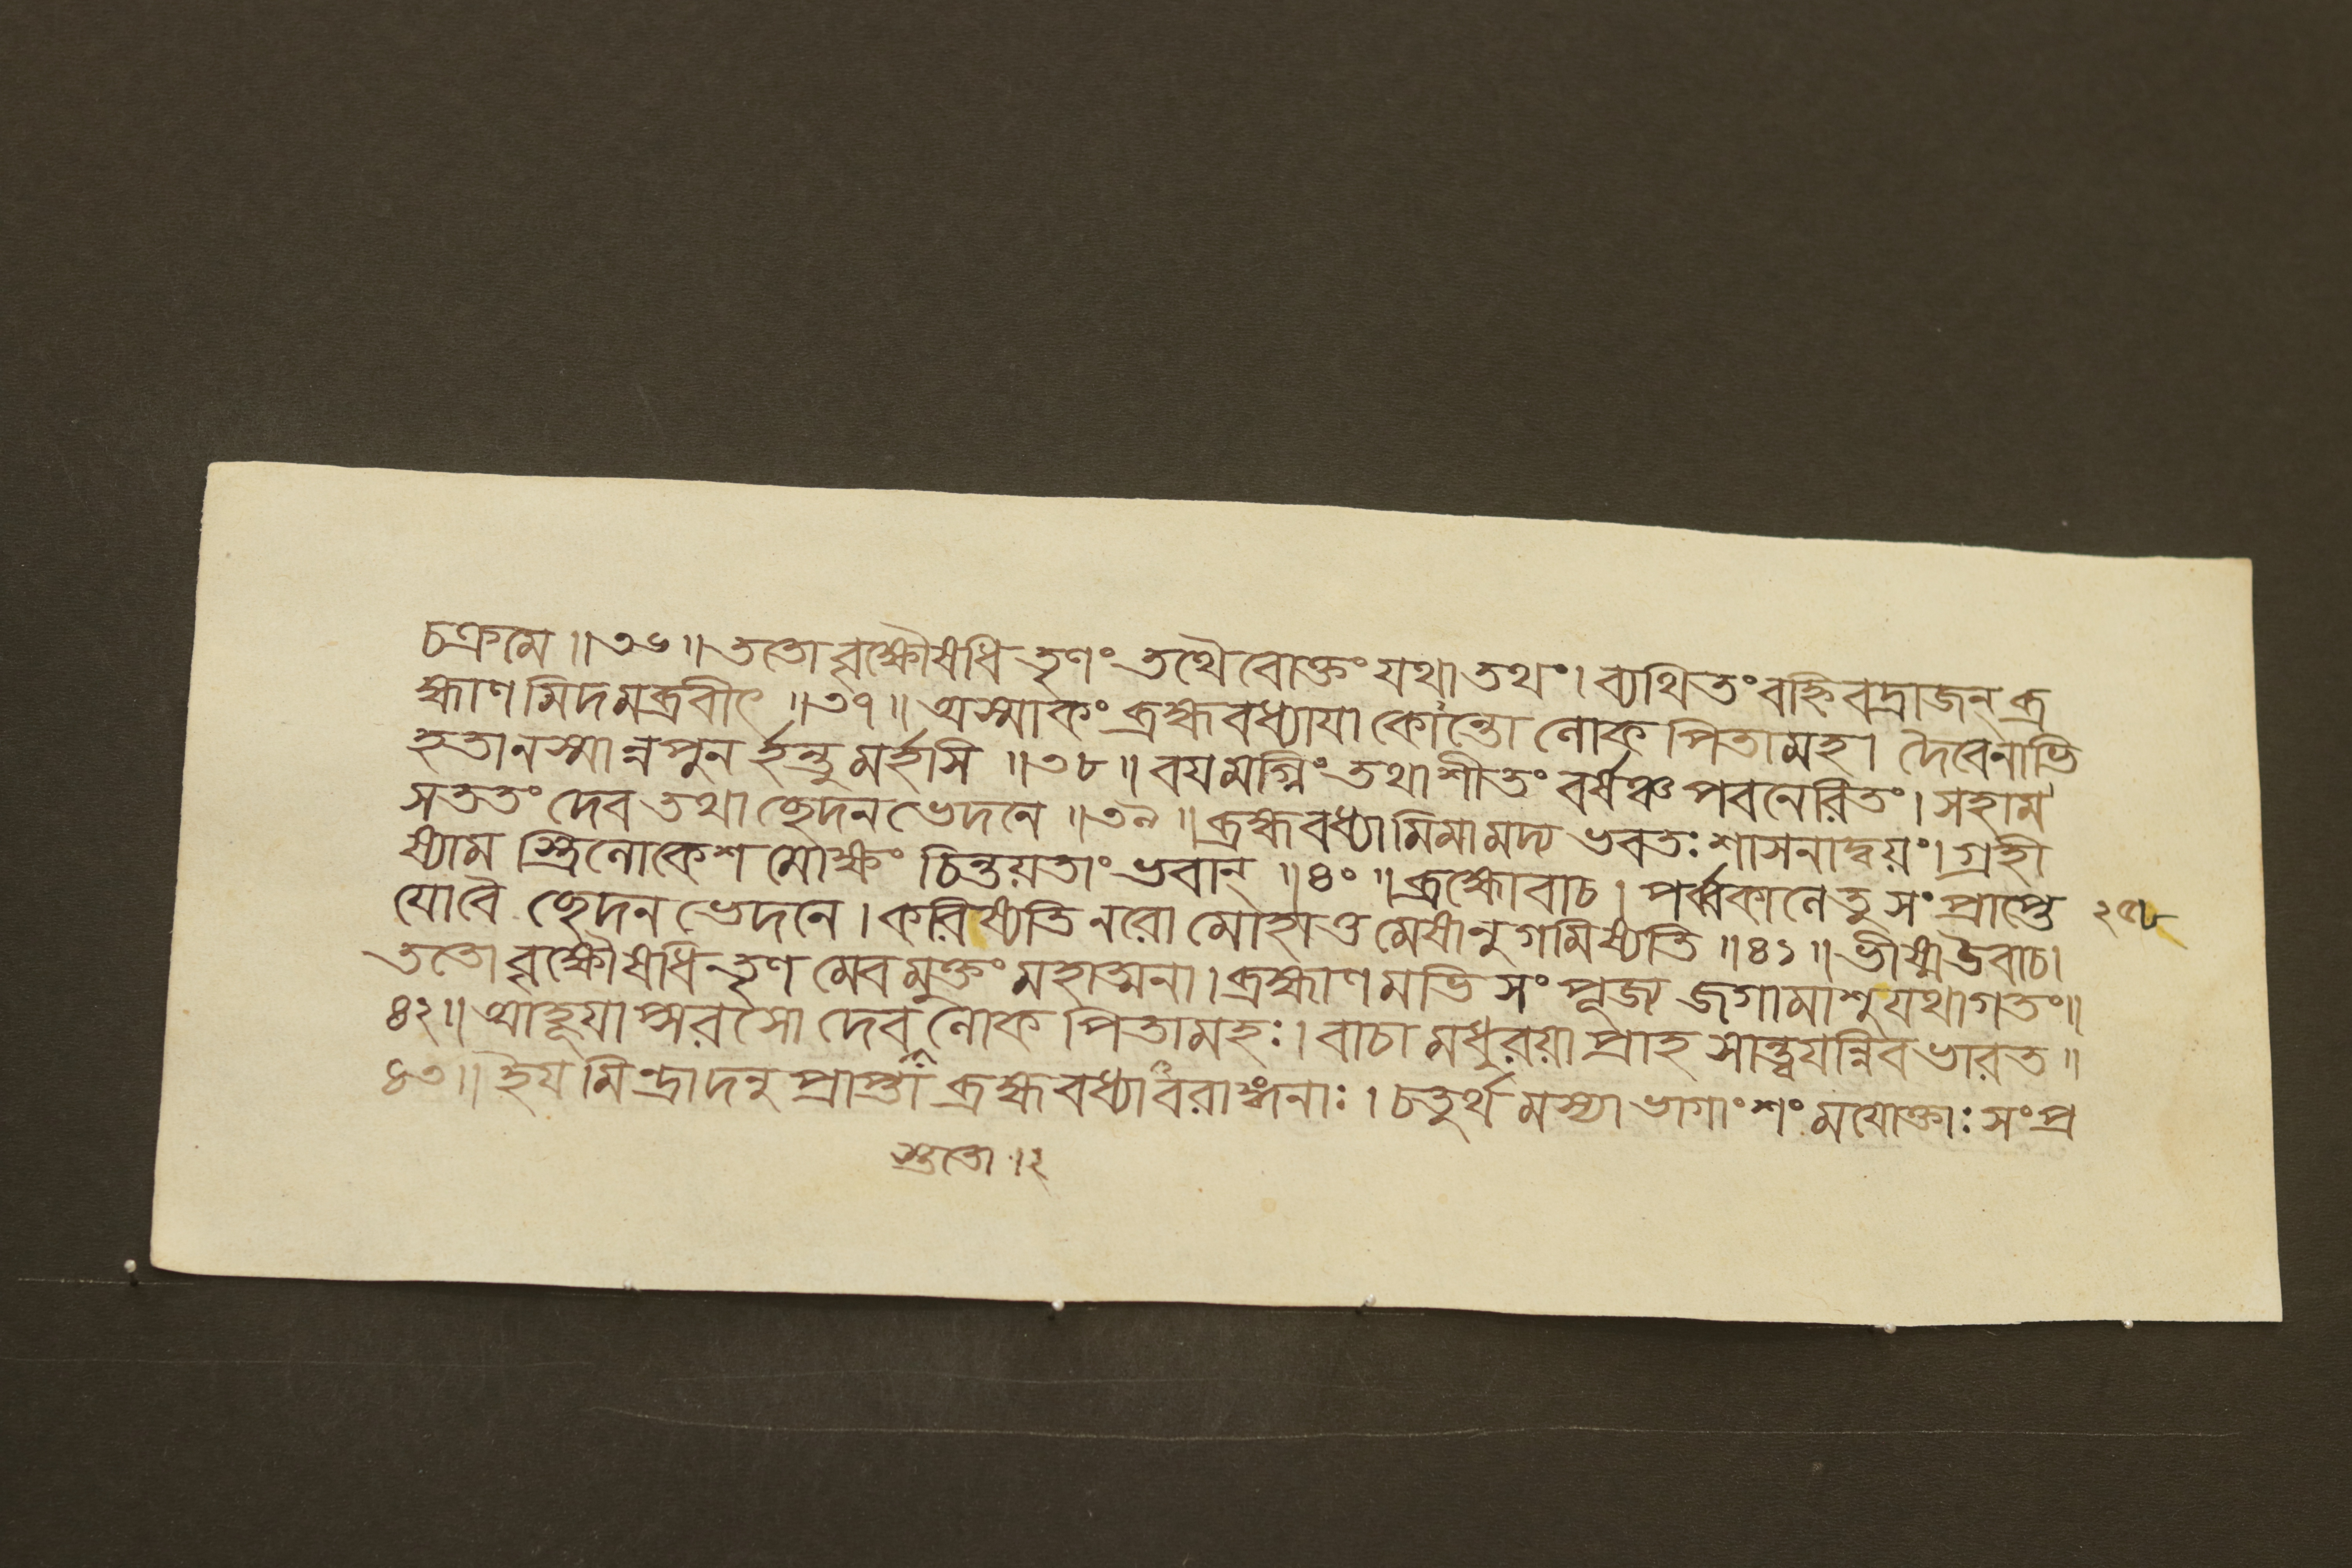 চক্রমে ॥৩৬॥ ততো বৃক্ষৌষধি তৃণং তথৈ বোক্তং যথা তথং। ব্যথিতং বহ্নি বদ্রাজন্ ব্র
হ্মাণ মিদমব্রবীৎ ॥৩৭॥ অস্মাকং ব্রহ্মবধ্যাযা কোন্তো লোক পিতামহ। দৈবেনাভি
হতানস্মান্ন পুন র্হন্তু মর্হসি ॥৩৮॥ বযমগ্নিং তথা শীতং বর্ষঞ্চ পবনেরিতং। সহাম
সততং দেব তথা ছেদন ভেদনে ॥৩৯॥ ব্রহ্মবধ্যা মিমা মদ্য ভবতঃ শাসনাদ্বয়ং। গ্রহী
ষ্যাম স্ত্রিলোকেশ মোক্ষং চিন্তয়তাং ভবান্ ॥৪০॥ ব্রহ্মোবাচ। পর্ব্বকালে তু সং প্রাপ্তে
যোবৈ ছেদন ভেদনে। করিষ্যতি নরো মোহাত্ত মেষানু গমিষ্যতি ॥৪১॥ ভীষ্মউবাচ।
ততো বৃক্ষৌষধি তৃণ মেব মুক্তং মহাত্মনা। ব্রহ্মাণ মভি সং পূজ্য জগামাশু যথাগতং॥
৪২॥ আহূযাপ্সরসো দেব লোক পিতামহঃ। বাচা মধুরয়া প্রাহ সান্ত্বযন্নিব ভারত॥
৪৩॥ ইয মিন্দ্রাদনু প্রাপ্তা ব্রহ্মবধ্যা বরাঙ্গনাঃ। চতুর্থ মস্যা ভাগাং শং মযোক্তাঃ সং প্র
২৫৮
স্ততো ।২